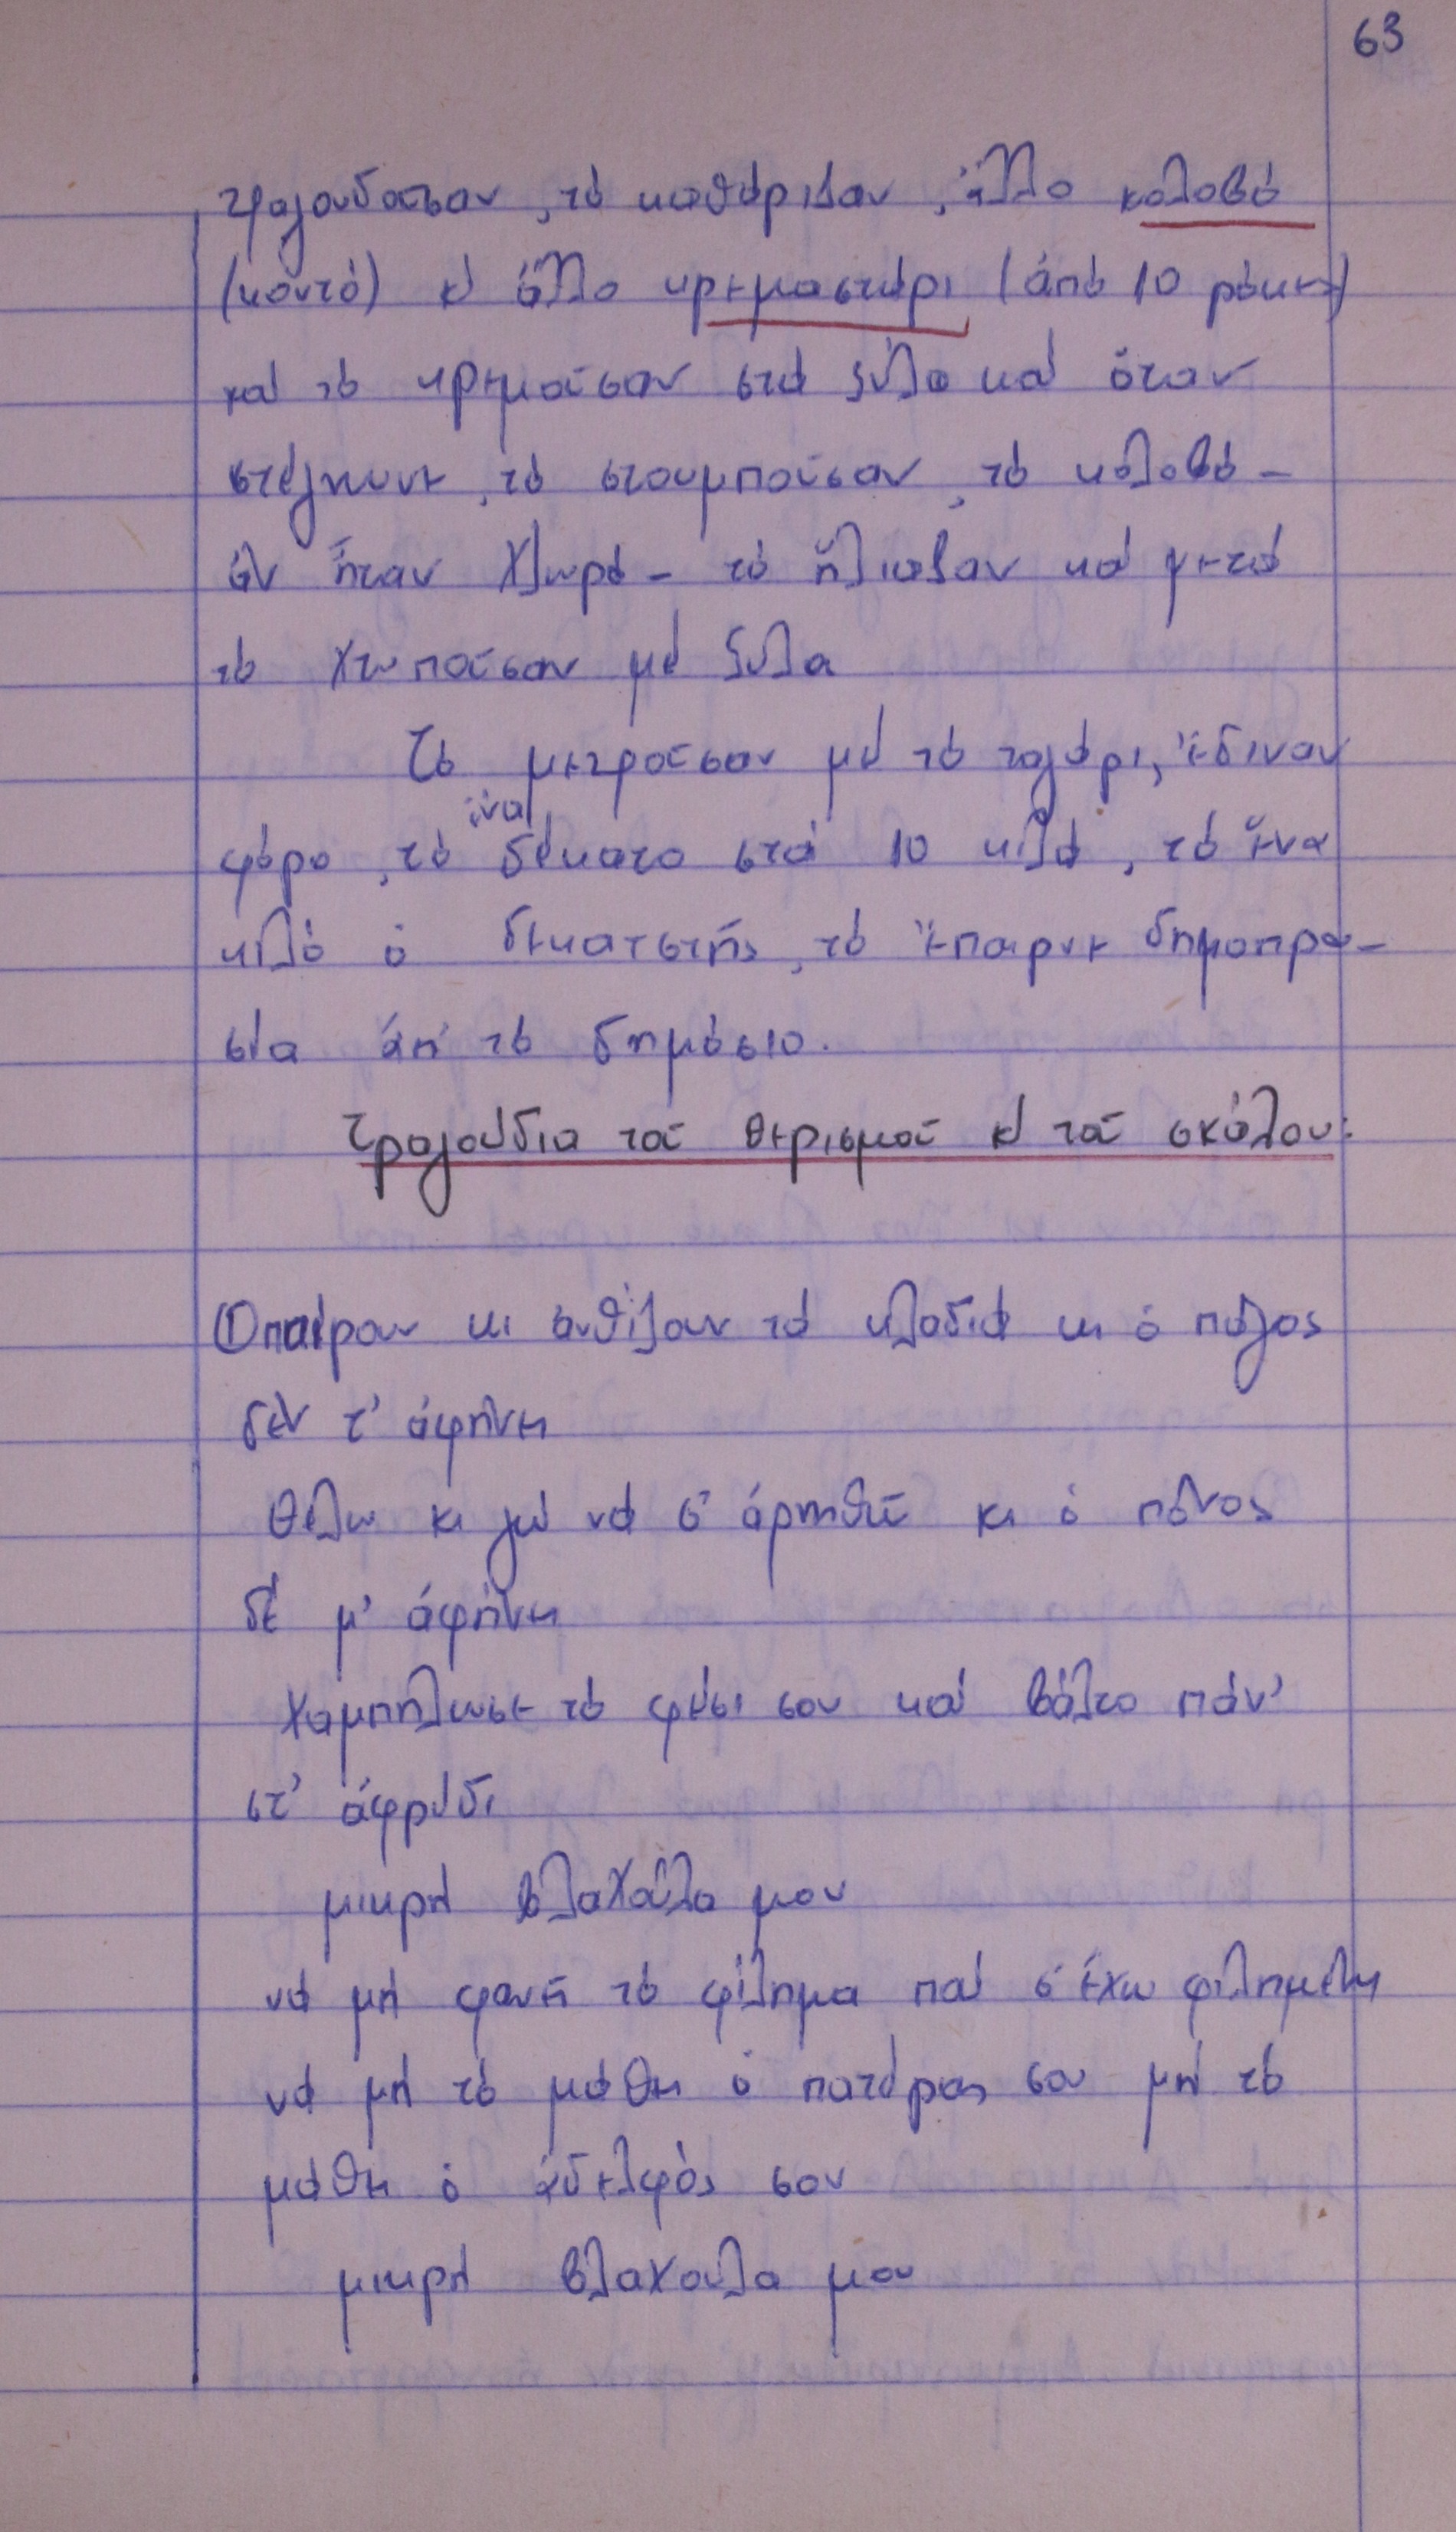 63
τραγουδοῦσαν, τό καθάριζαν, ἄλλο κολοβό
(κοντό) κ' ἄλλο κρεμαστάρι (ἀπό 10 ρόκες)
καί τό κρεμοῦσαν στά ξύλα καί ὅταν
στέγνωνε, τό στουμποῦσαν, τό κολοβό -
ἄν ἦταν χλωρό - τό ἥλιαζαν καί μετά
τό χτυποῦσαν μέ ξύλα
Τό μετροῦσαν μέ τό ταγάρι, ἔδιναν
ἕνα
φόρο, τό δέκατο στά 10 κιλά, τό ἕνα
κιλό ὁ δεκατιστής, τό ἔπαιρνε δημοπρα-
σία ἀπ' τό δημόσιο.
Τραγούδια τοῦ θερισμοῦ κ' τοῦ σκάλου:
① παίρουν κι ἀνθίζουν τά κλαδιά κι ὁ πάγος
δέν τ' ἀφήνει
Θέλω κι γώ νά σ' ἀρνηθῶ κι ὁ πόνος
δέ μ' ἀφήνει
Χαμπήλωσε τό φέσι σου καί βάλτο πάν'
στ' ἀφρύδι
μικρή βλαχούλα μου
νά μή φανῆ τό φίλημα πού σ' ἔχω φιλημένη
νά μή τό μάθει ὁ πατέρας σου μή τό
μάθει ὁ ἀδελφός σου
μικρή βλαχούλα μου